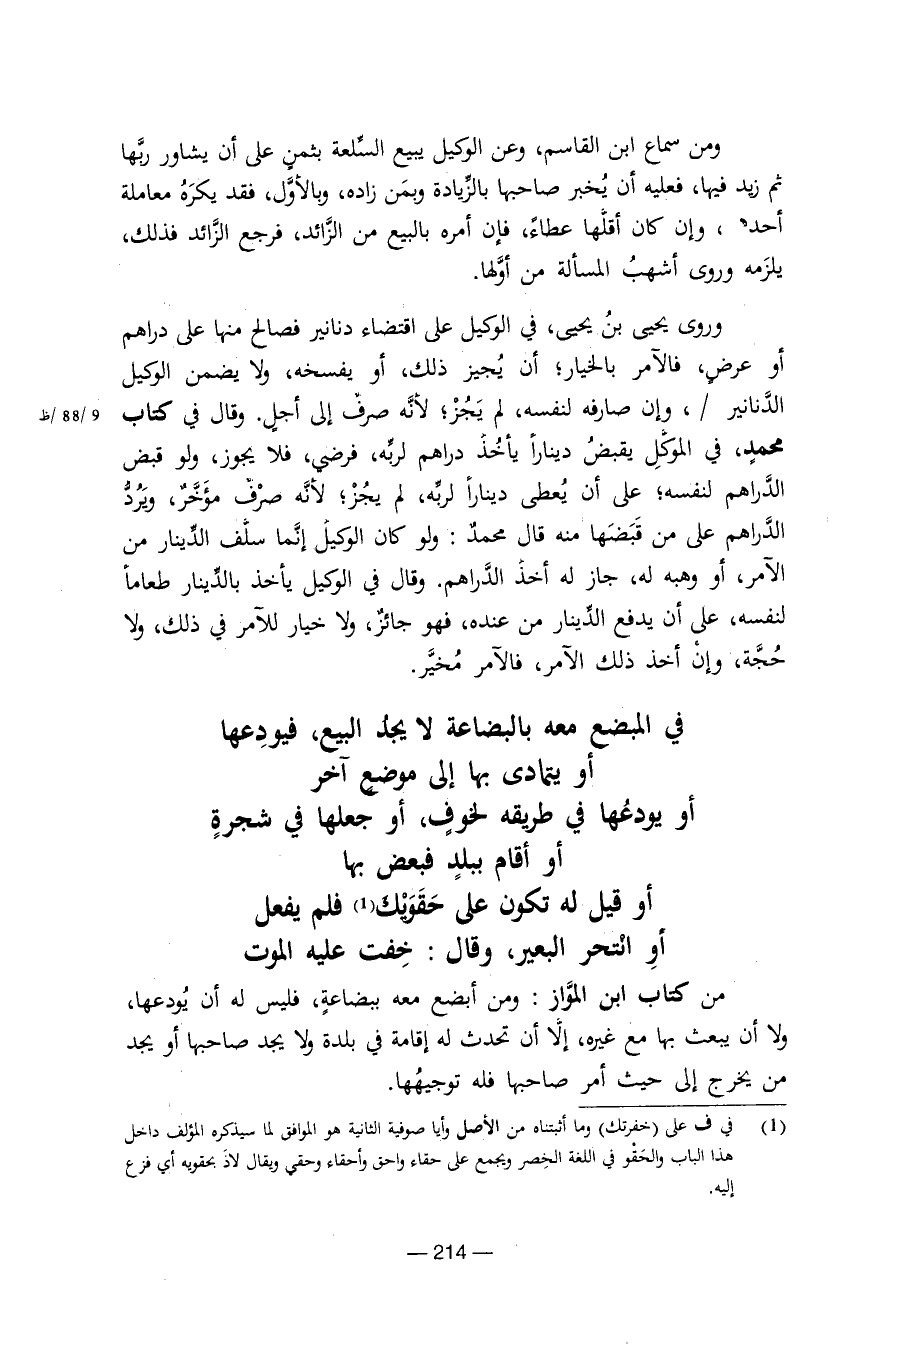 ومن سماع ابن القاسم، وعن الوكيل يبيع السِّلعة بثمنٍ على أن يشاور ربَّها
ثم زيد فيها، فعليه أن يُخبر صاحبها بالزِّيادة وبمَن زاده، وبالأوَّل، فقد يكرَهُ معاملة
أحدٍ ، وإن كان أقلَّها عطاءً، فإن أمره بالبيع من الزَّائد، فرجع الزَّائد فذلك،
يلزَمه وروى أشهبُ المسألة من أوَّلها.
وروى يحيى بنُ يحيى، في الوكيل على اقتضاء دنانير فصالح منها على دراهم
أو عرضٍ، فالآمر بالخيار؛ أن يُجيز ذلك، أو يفسخه، ولا يضمن الوكيل
الدَّنانير / ، وإن صارفه لنفسه، لم يَجُزْ؛ لأنَّه صرفٌ إلى أجلٍ. وقال في كتاب 9 /88 /ظ
محمدٍ، في الموَكَّلِ يقبضُ ديناراً يأخُذُ دراهم لربِّه، فرضي، فلا يجوز، ولو قبض
الدَّراهم لنفسه؛ على أن يُعطى ديناراً لربِّه، لم يجُزْ؛ لأنَّه صرْفٌ مؤَخَّرٌ، ويَرُدُّ
الدَّراهم على من قَبَضَها منه قال محمدٌ : ولو كان الوكيلُ إنَّما سلَّف الدِّينار من
الآمر، أو وهبه له، جاز له أخذُ الدَّراهم. وقال في الوكيل يأخذ بالدِّينار طعاماً
لنفسه، على أن يدفع الدِّينار من عنده، فهو جائزٌ، ولا خيار للآمر في ذلك، ولا
حُجَّة، وإنْ أخذ ذلك الآمر، فالآمر مُخيَّر.
في المبضع معه بالبضاعة لا يجدُ البيع، فيودِعها
أو يتمادى بها إلى موضعٍ آخر
أو يودعُها في طريقه لخوفٍ، أو جعلها في شجرةٍ
أو أقام ببلدٍ فبعض بها
أو قيل له تكون على حَقَوَيْكَ(1) فلم يفعل
أوِ انْتحر البعير، وقال : خِفت عليه الموت
من كتاب ابن الموَّاز : ومن أبضع معه ببضاعةٍ، فليس له أن يُودعها،
ولا أن يبعث بها مع غيره، إلَّا أن تحدث له إقامة في بلدة ولا يجد صاحبها أو يجد
من يخرج إلى حيث أمر صاحبها فله توجيهُها.
(1) في ف على (خفرتك) وما أثبتناه من الأصل وأيا صوفية الثانية هو الموافق لما سيذكره المؤلف داخل
هذا الباب والحَقْو في اللغة الخِصر ويجمع على حقاء واحق وأحقاء وحقي ويقال لاذَ بحقويه أي فزع
إليه.
— 214 —